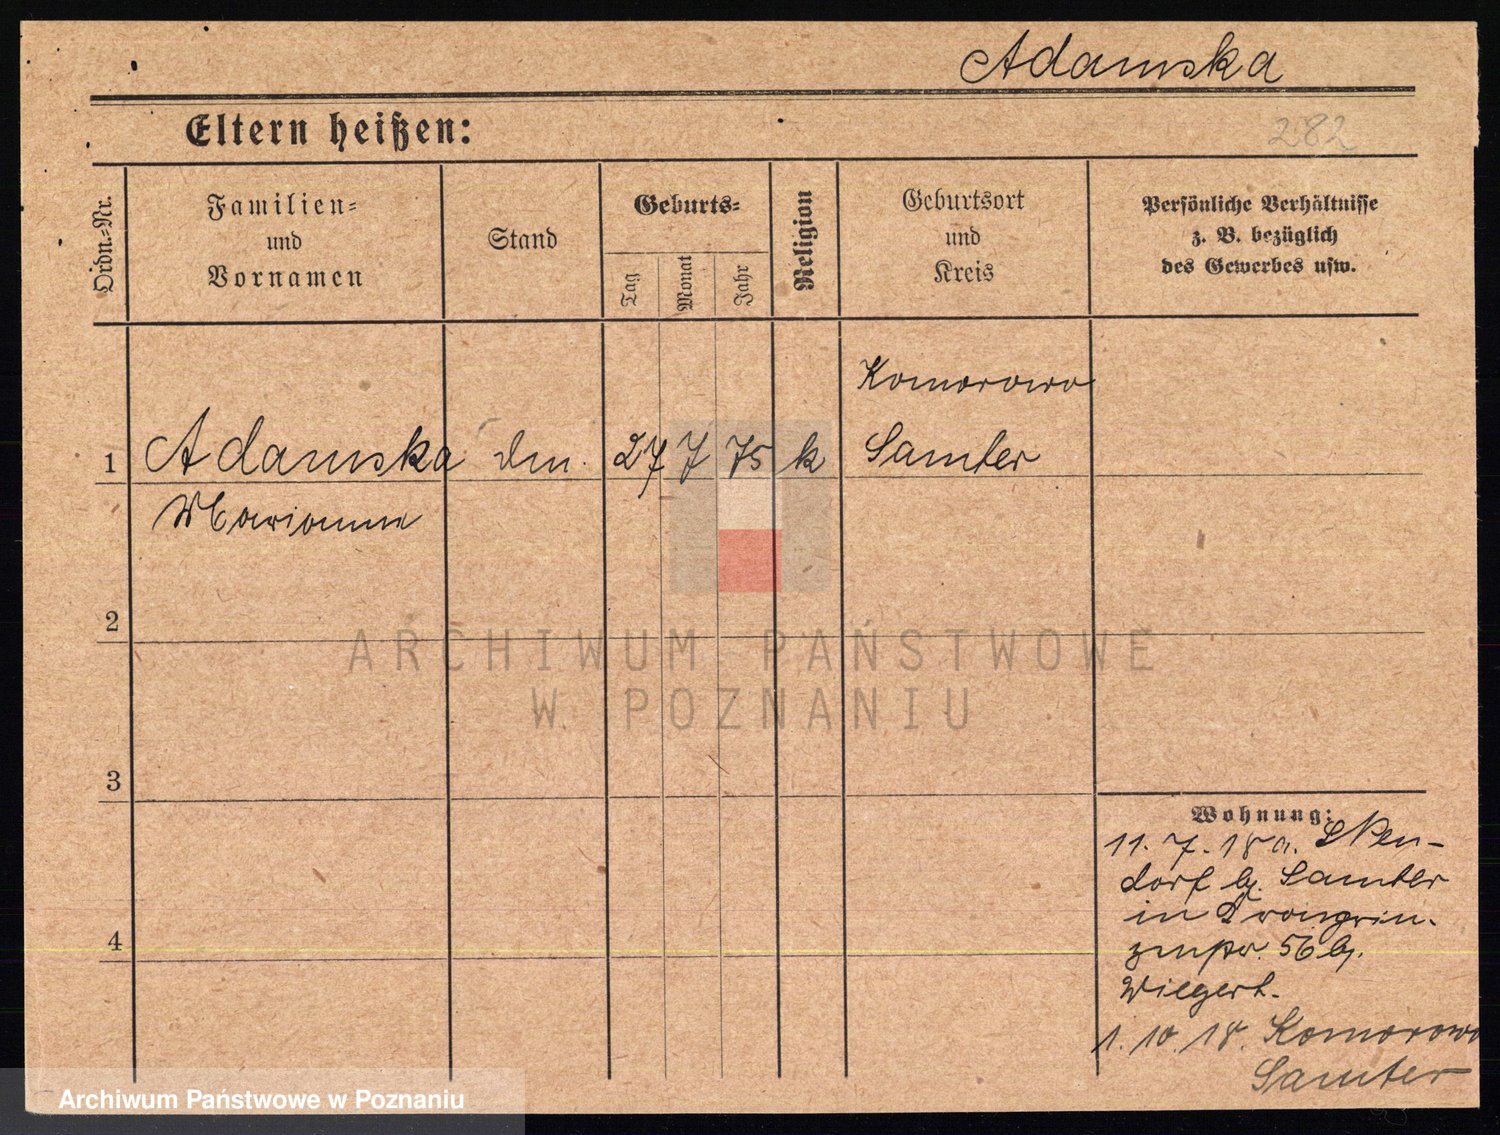 Adamska
Eltern heißen:
282
Ordn.-Nr.
Familien-
und
Vornamen
Stand
Geburts-
Tag
Monat
Jahr
Religion
Geburtsort
und
Kreis
Persönliche Verhältnisse
z. B. bezüglich
des Gewerbes usw.
Komorowo
1 Adamska 27 7 75 k Samter
Marianna
2
ARCHIWUM PAŃSTWOWE
W POZNANIU
3
Wohnung:
11. 7. 18 a. Neu-
dorf b. Samter
in
4
56 b.
Wiegert.
1. 10. 18. Komorowo
Samter
Archiwum Państwowe w Poznaniu